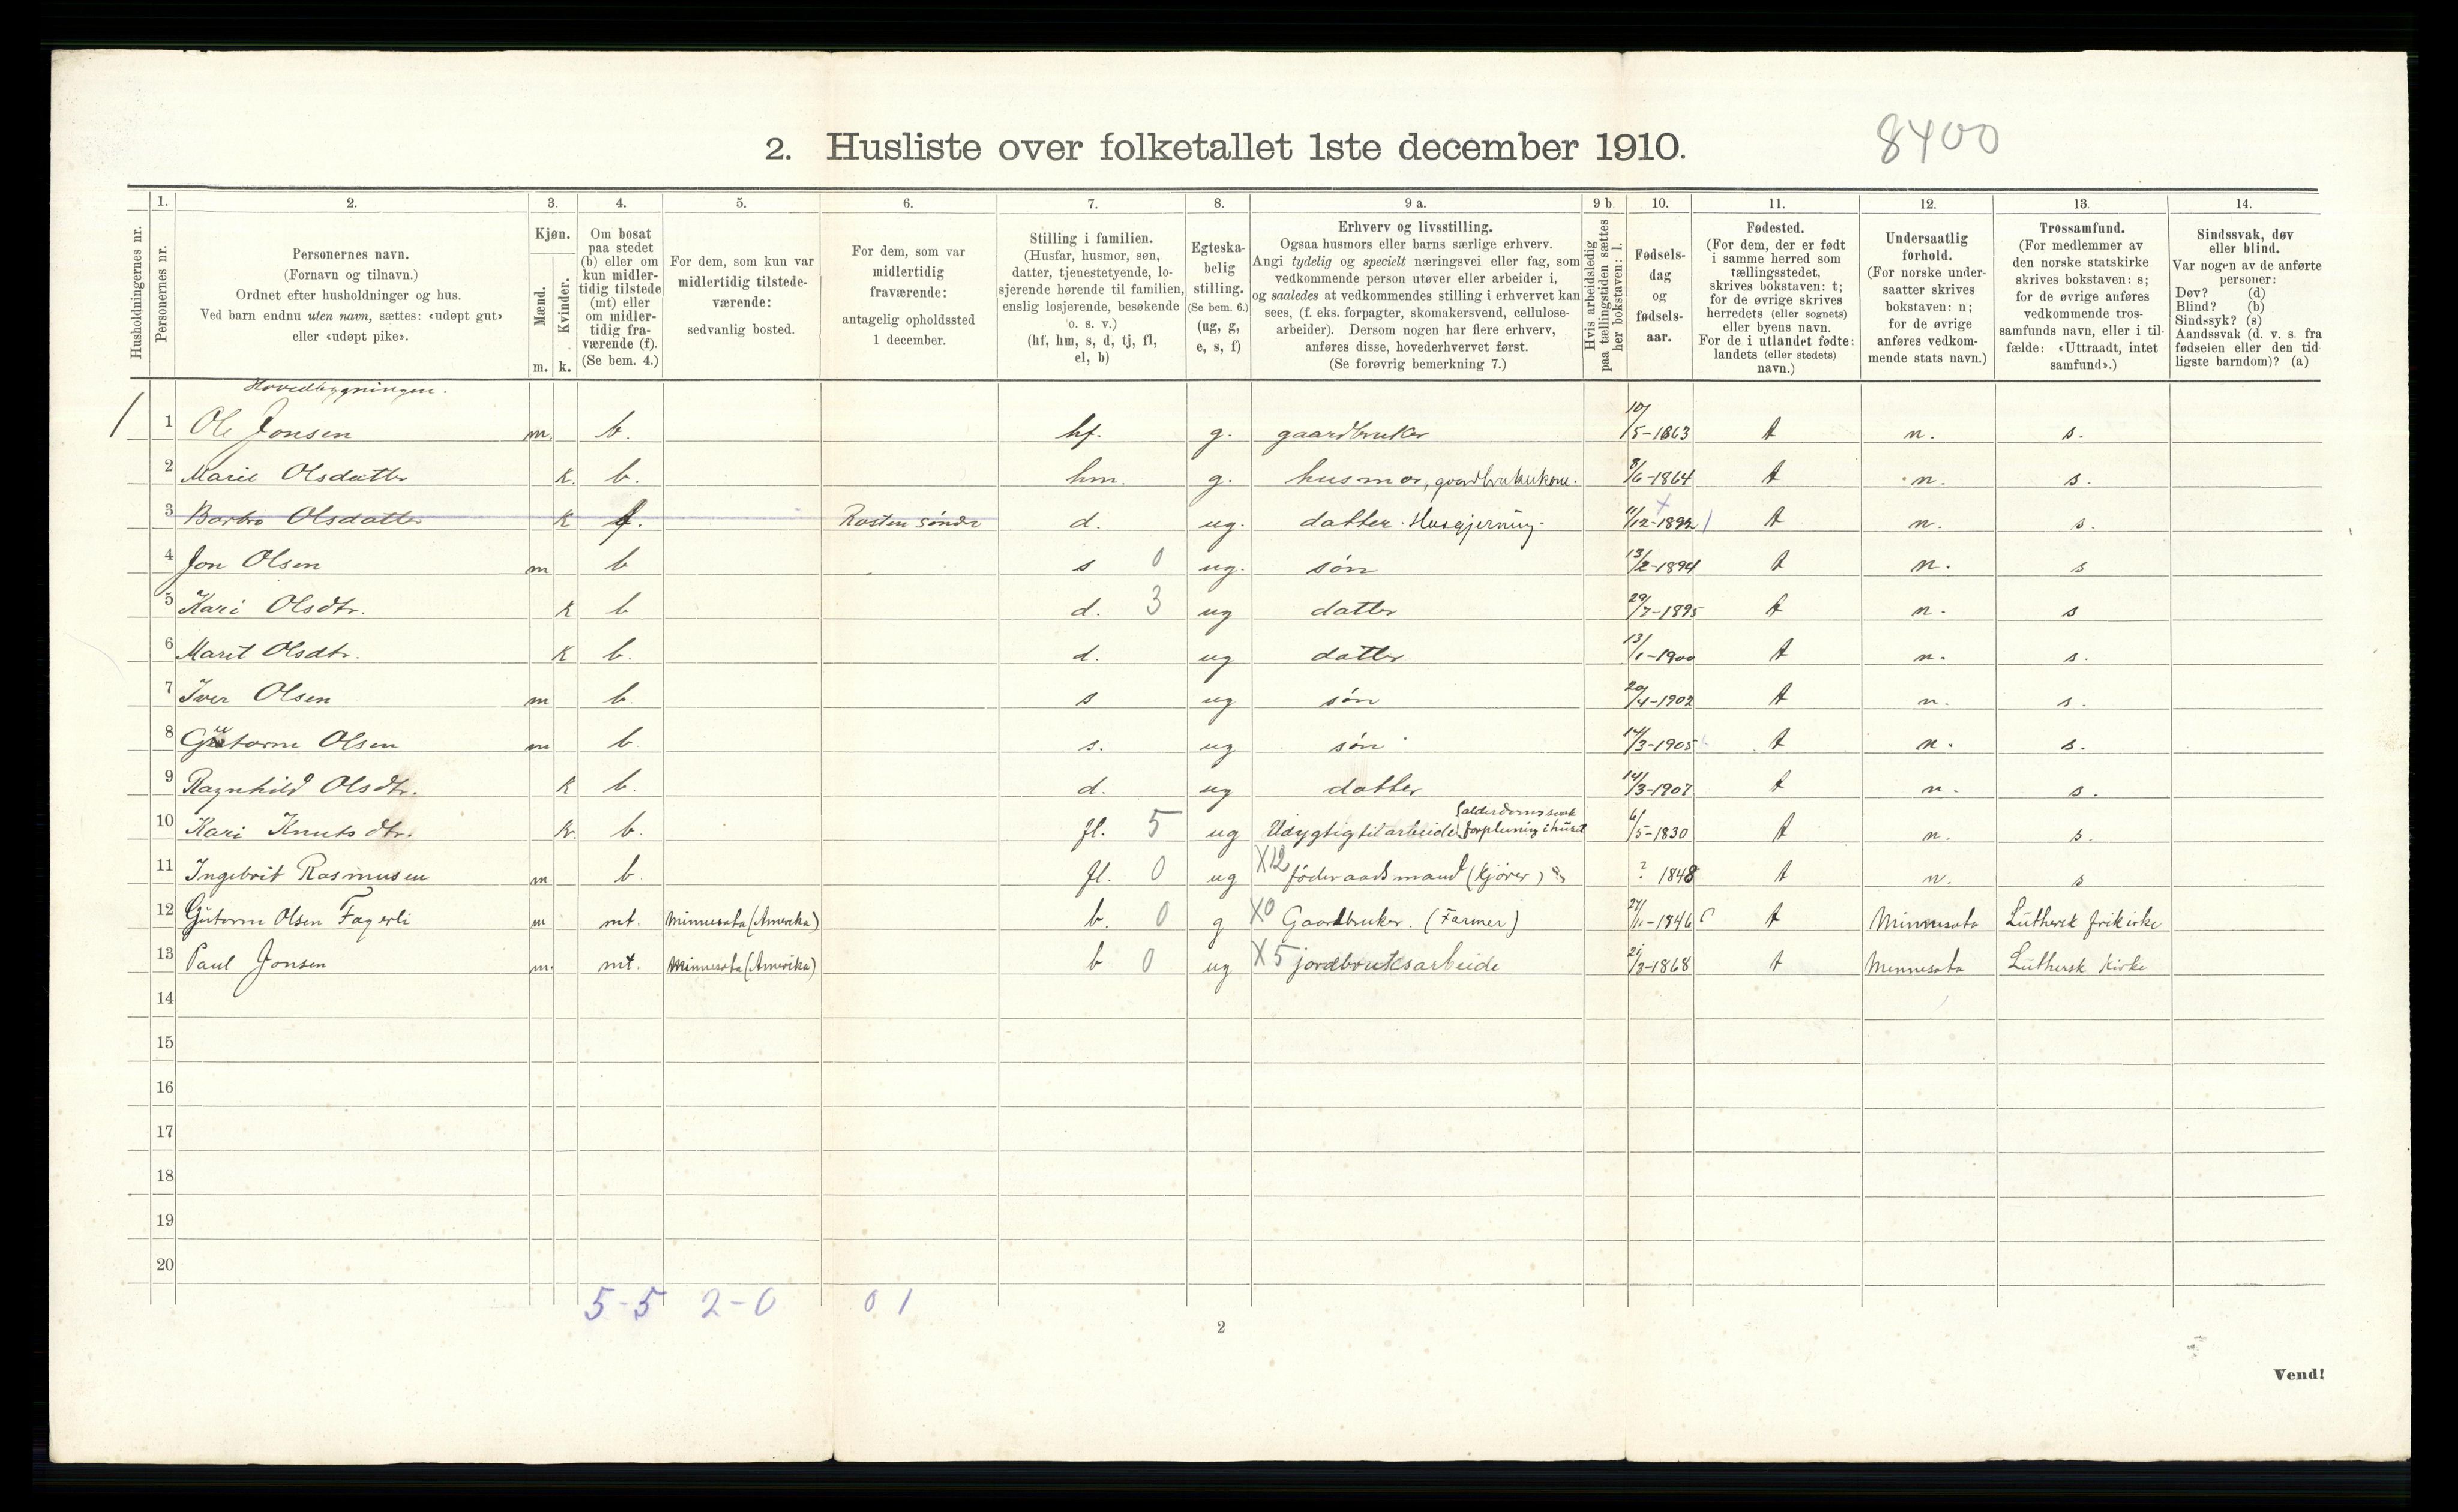 8400
2. Husliste over folketallet 1ste december 1910.
Husholdningernes nr.
1. Personernes nr.
2. Personernes navn.
(Fornavn og tilnavn.)
Ordnet efter husholdninger og hus.
Ved barn endnu uten navn, sættes: «udøpt gut»
eller «udøpt pike».
3. Kjøn.
Mænd. m.
Kvinder. k.
4. Om bosat
paa stedet
(b) eller om
kun midler-
tidig tilstede
(mt) eller
om midler-
tidig fra-
værende (f).
(Se bem. 4.)
5. For dem, som kun var
midlertidig tilstede-
værende:
sedvanlig bosted.
6. For dem, som var
midlertidig
fraværende:
antagelig opholdssted
1 december.
7. Stilling i familien.
(Husfar, husmor, søn,
datter, tjenestetyende, lo-
sjerende hørende til familien,
enslig losjerende, besøkende
o. s. v.)
(hf, hm, s, d, tj, fl,
el, b)
8. Egteska-
belig
stilling.
(Se bem. 6.)
(ug, g,
e, s, f)
9 a. Erhverv og livsstilling.
Ogsaa husmors eller barns særlige erhverv.
Angi tydelig og specielt næringsvei eller fag, som
vedkommende person utøver eller arbeider i,
og saaledes at vedkommendes stilling i erhvervet kan
sees, (f. eks. forpagter, skomakersvend, cellulose-
arbeider). Dersom nogen har flere erhverv,
anføres disse, hovederhvervet først.
(Se forøvrig bemerkning 7.)
9 b. Hvis arbeidsledig
paa tællingstiden sættes
her bokstaven: l.
10. Fødsels-
dag
og
fødsels-
aar.
11. Fødested.
(For dem, der er født
i samme herred som
tællingsstedet,
skrives bokstaven: t;
for de øvrige skrives
herredets (eller sognets)
eller byens navn.
For de i utlandet fødte:
landets (eller stedets)
navn.)
12. Undersaatlig
forhold.
(For norske under-
saatter skrives
bokstaven: n;
for de øvrige
anføres vedkom-
mende stats navn.)
13. Trossamfund.
(For medlemmer av
den norske statskirke
skrives bokstaven: s;
for de øvrige anføres
vedkommende tros-
samfunds navn, eller i til-
fælde: «Uttraadt, intet
samfund».)
14. Sindssvak, døv
eller blind.
Var nogen av de anførte
personer:
Døv? (d)
Blind? (b)
Sindssyk? (s)
Aandssvak (d. v. s. fra
fødselen eller den tid
ligste barndom)? (a)
Hovedbygningen.
1 1 Ole Jonsen m. b. hf. g. gaardbruker 10/5-1863 t n. s.
2 Marie Olsdatter k. b. hm. g. husmor, gaardbrukerkone. 8/6-1864 t n. s.
3 Barbro Olsdatter k f. Rosten søndr d. ug. datter. Husgjerning 11/12-1892 t n. s.
4 Jon Olsen m b s 0 ug. søn 13/2-1894 t n. s
5 Kari Olsdtr. k b d. 3 ug datter 29/7-1895 t n. s
6 Marit Olsdtr. k b. d. ug datter 13/1-1900 t n. s.
7 Iver Olsen m b. s ug søn 20/4-1902 t n. s.
8 Gutorm Olsen m b. s. ug søn 14/3-1905 t n. s.
9 Ragnhild Olsdtr. k b. d. ug datter 14/3-1907 t n. s.
10 Kari Knutsdtr. k. b. fl. 5 ug Udygtig til arbeide (alderdomssvak forpleining i huset 6/5-1830 t n. s.
11 Ingebrit Rasmusen m b. fl. 0 ug X12 føderaadsmand (kjører) ? 1848 t n. s
12 Gutorm Olsen Fagerli m mt. Minnesota (Amerika) b. 0 g X0 Gaardbruker. (Farmer) 27/11-1846 t Minnesota Luthersk frikirke
13 Paul Jonsen m. mt. Minnesota (Amerika) b 0 ug X5 jordbruksarbeide 21/3-1868 t Minnesota Luthersk Kirke
14
15
16
17
18
19
20
5-5 2-0 0 1
2
Vend!